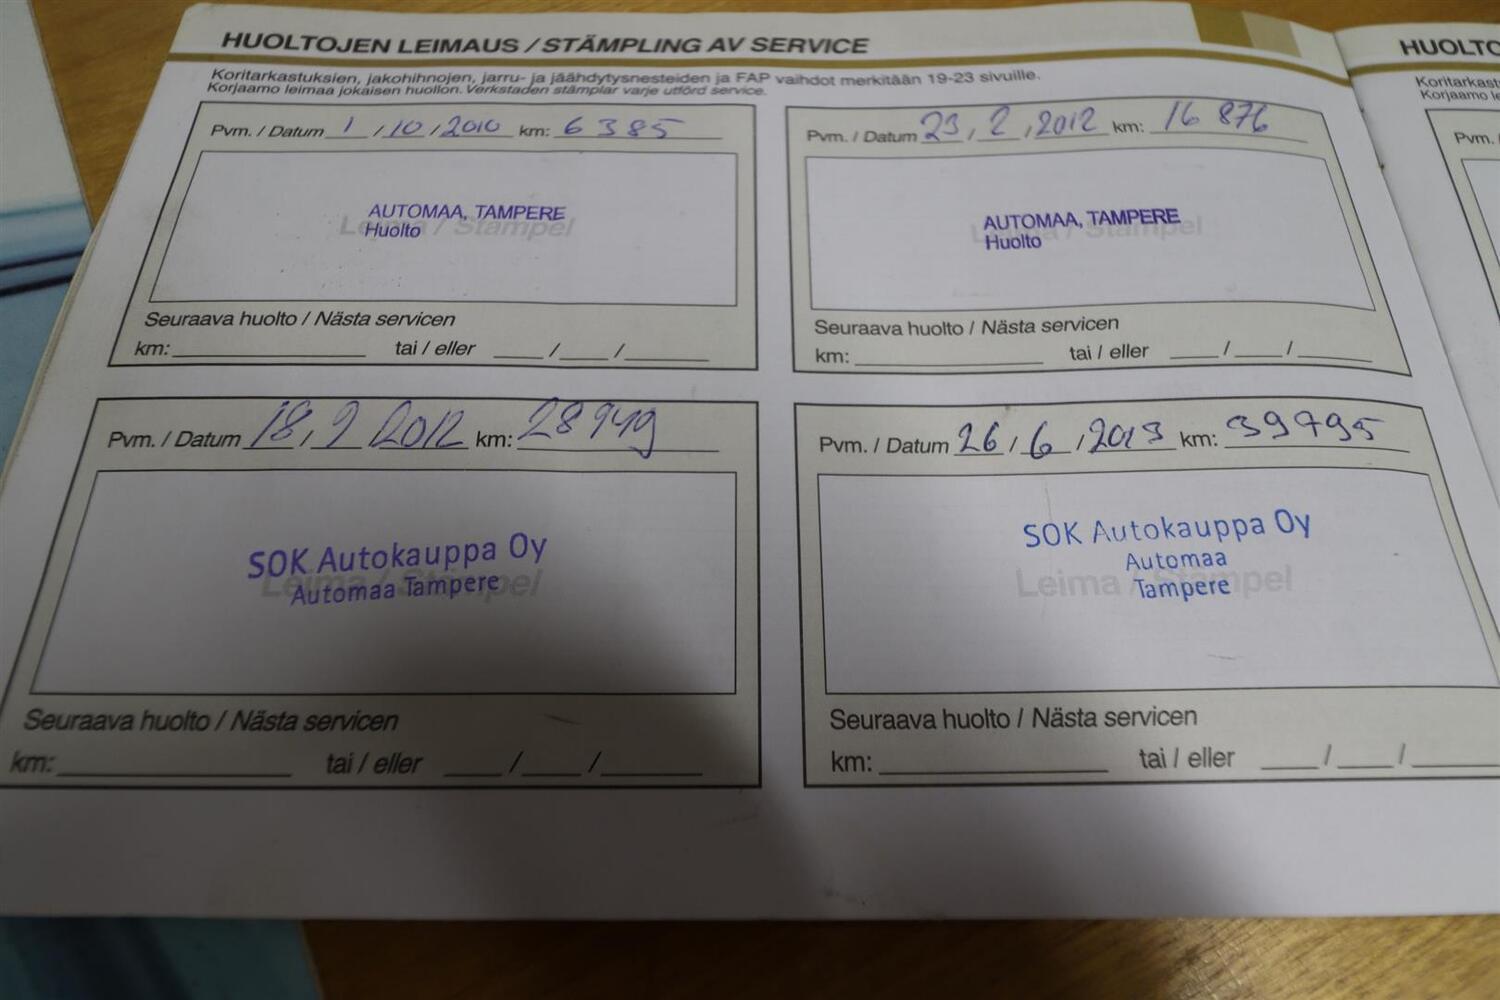 HUOLTOJEN LEIMAUS / STÄMPLING AV SERVICE
Koritarkastuksien, jakohihnojen, jarru- ja jäähdytysnesteiden ja FAP vaihdot merkitään 19-23 sivuille.
Korjaamo leimaa jokaisen huollon. Verkstaden stämplar varje utförd service.
Pvm. / Datum 1 / 10 / 2010 km: 6385
Leima / Stämpel
AUTOMAA, TAMPERE
Huolto
Seuraava huolto / Nästa servicen
km: tai / eller / /
Pvm. / Datum 23 / 2 / 2012 km: 16 876
Leima / Stämpel
AUTOMAA, TAMPERE
Huolto
Seuraava huolto / Nästa servicen
km: tai / eller / /
Pvm. / Datum 18 / 9 / 2012 km: 28949
Leima / Stämpel
SOK Autokauppa Oy
Automaa Tampere
Seuraava huolto / Nästa servicen
km: tai / eller / /
Pvm. / Datum 26 / 6 / 2013 km: 39795
Leima / Stämpel
SOK Autokauppa Oy
Automaa
Tampere
Seuraava huolto / Nästa servicen
km: tai / eller / /
Pvm.